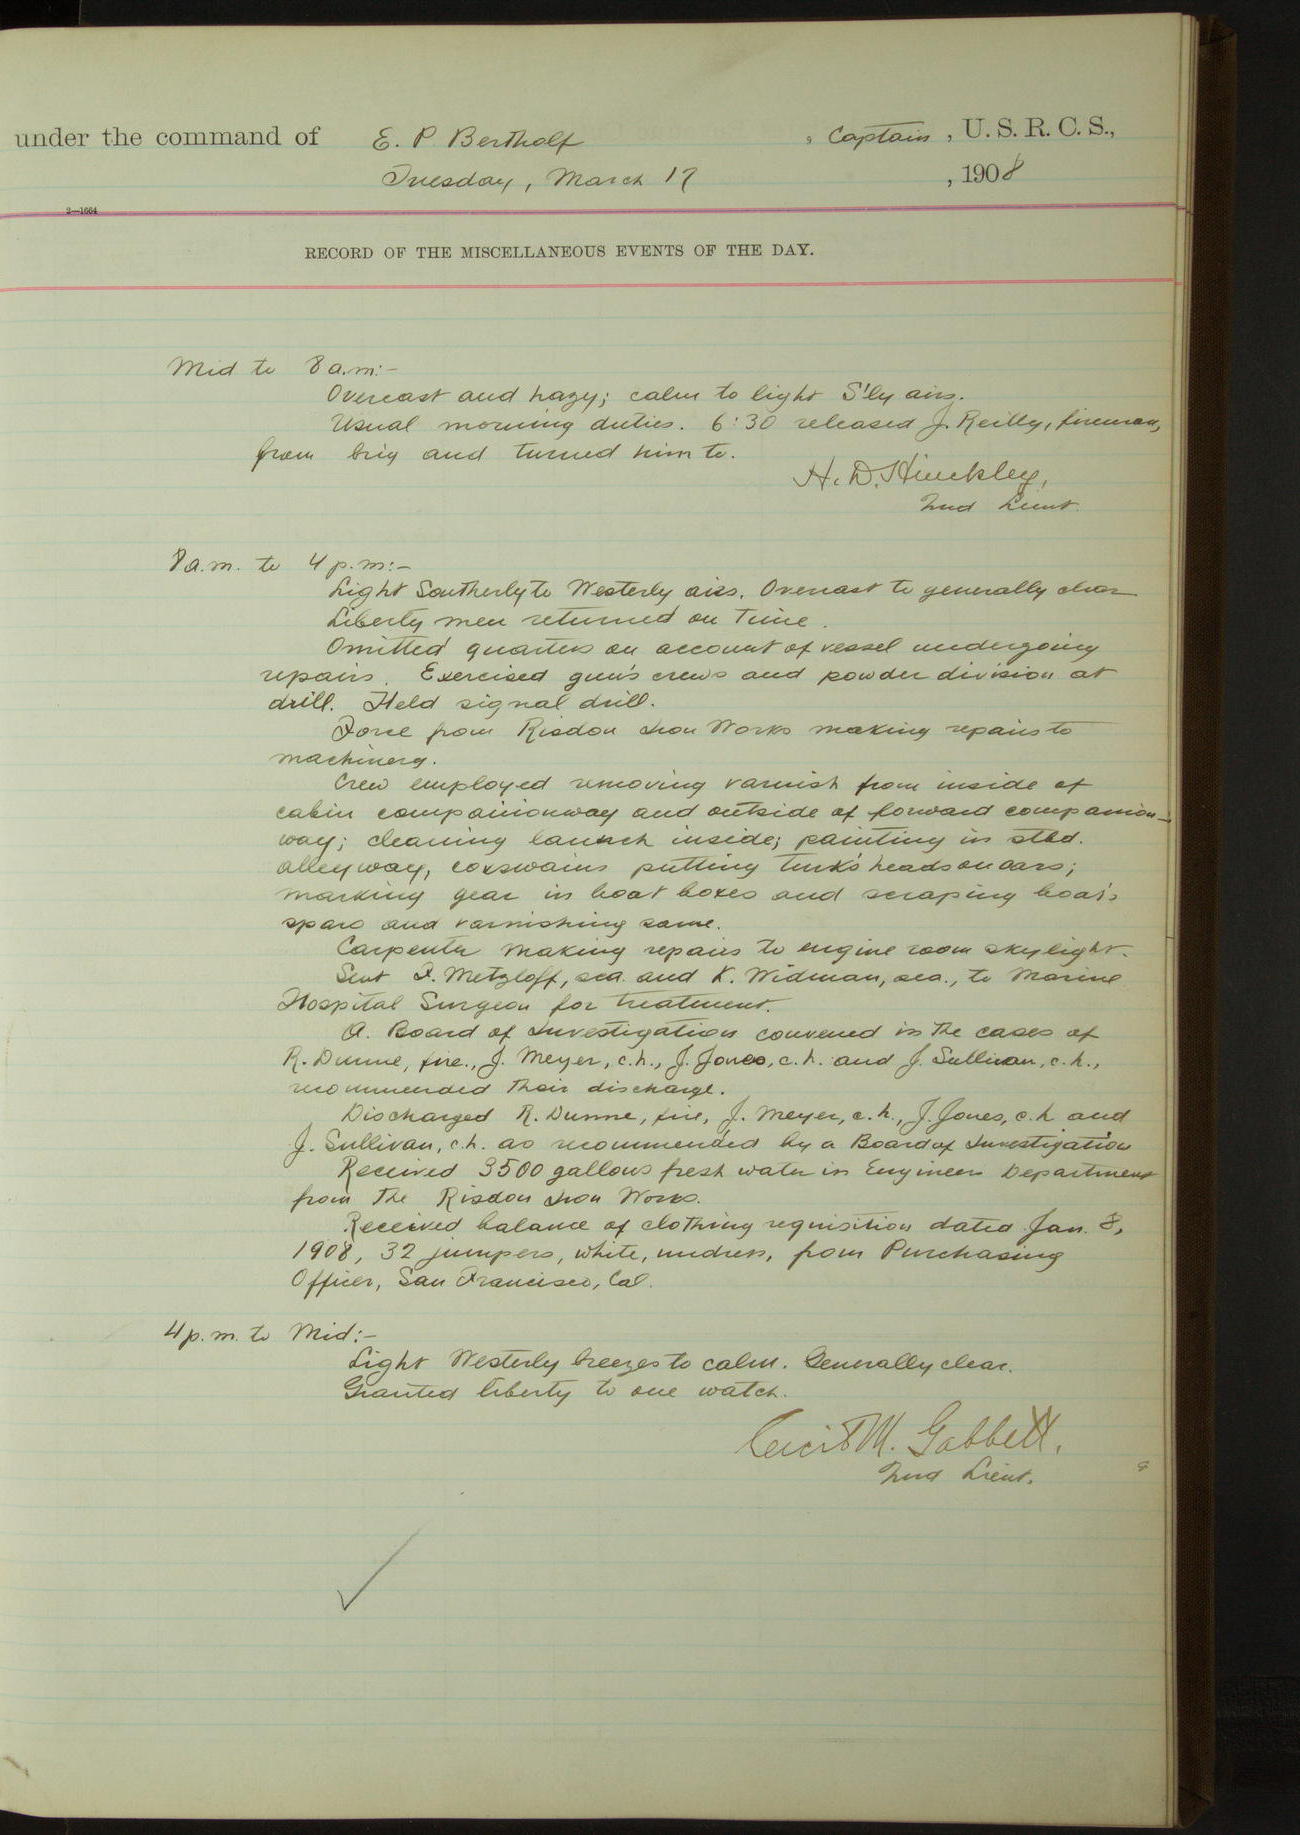 under the command of E. P. Bertholf, Captain, U. S. R. C. S.,
Tuesday, March 17, 1908
2—1664
RECORD OF THE MISCELLANEOUS EVENTS OF THE DAY.
Mid to 8 a.m:-
Overcast and hazy; calm to light S'ly airs.
Usual morning duties. 6:30 released J. Reilly, fireman,
from brig and turned him to.
H. D. Hinckley,
2nd Lieut.
8 a.m. to 4 p.m:-
Light Southerly to Westerly airs. Overcast to generally clear
Liberty men returned on time.
Omitted quarters on account of vessel undergoing
repairs. Exercised gun's crews and powder division at
drill. Held signal drill.
Force from Risdon Iron Works making repairs to
machinery.
Crew employed removing varnish from inside of
cabin compainionway and outside of forward companion-
way; cleaning launch inside; painting in stbd.
alleyway, coxswains putting turk's heads on oars;
marking gear in boat boxes and scraping boat's
spars and varnishing same.
Carpenter making repairs to engine room skylight.
Sent F. Metzloff, sea. and K. Widman, sea., to Marine
Hospital Surgeon for treatment.
A. Board of Investigation convened in the cases of
R. Dunne, fire., J. Meyer, c.h., J. Jones, c.h. and J. Sullivan, c.h.,
recommended their discharge.
Discharged R. Dunne, fire, J. Meyer, c.h., J. Jones, c.h and
J. Sullivan, c.h. as recommended by a Board of Investigation
Received 3500 gallons fresh water in Engineers Department
from the Risdon Iron Works.
Received balance of clothing requisition dated Jan. 8,
1908, 32 jumpers, white, undress, from Purchasing
Officer, San Francisco, Cal.
4 p.m. to Mid:-
Light Westerly breezes to calm. Generally clear.
Granted liberty to one watch.
Cecil M. Gabbett.
2nd Lieut.